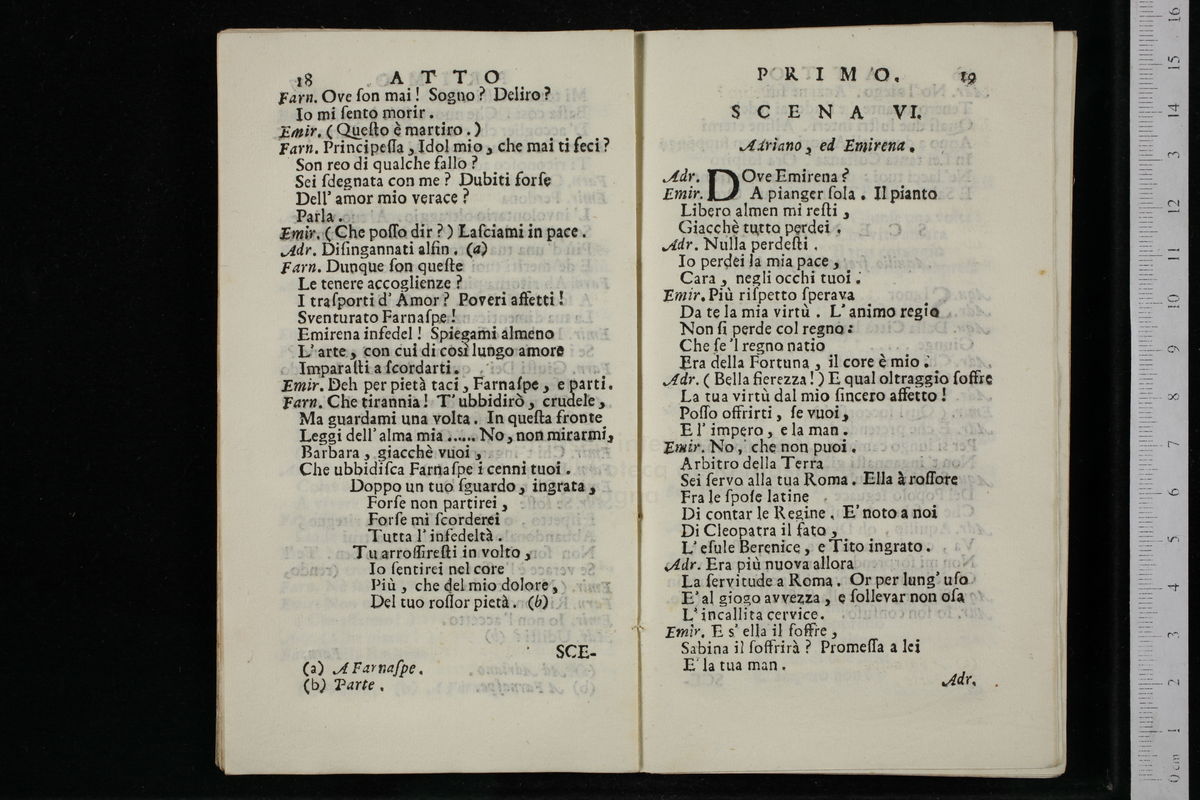 18 ATTO
Farn. Ove ſon mai! Sogno? Deliro?
Io mi ſento morir.
Emir. (Queſto è martiro.)
Farn. Principeſſa, Idol mio, che mai ti feci?
Son reo di qualche fallo?
Sei ſdegnata con me? Dubiti forſe
Dell' amor mio verace?
Parla.
Emir. (Che poſſo dir?) Laſciami in pace.
Adr. Diſingannati alfin. (a)
Farn. Dunque ſon queſte
Le tenere accoglienze?
I traſporti d' Amor? Poveri affetti!
Sventurato Farnaſpe!
Emirena infedel! Spiegami almeno
L' arte, con cui di così lungo amore
Imparaſti a ſcordarti.
Emir. Deh per pietà taci, Farnaſpe, e parti.
Farn. Che tirannia! T' ubbidirò, crudele,
Ma guardami una volta. In queſta fronte
Leggi dell' alma mia ...... No, non mirarmi,
Barbara, giacchè vuoi,
Che ubbidiſca Farnaſpe i cenni tuoi.
Doppo un tuo ſguardo, ingrata,
Forſe non partirei,
Forſe mi ſcorderei
Tutta l' infedeltà.
Tu arroſſireſti in volto,
Io ſentirei nel core
Più, che del mio dolore,
Del tuo roſſor pietà. (b)
SCE-
(a) A Farnaſpe.
(b) Parte.
PRIMO. 19
SCENA VI.
Adriano, ed Emirena.
Adr. DOve Emirena?
Emir. A pianger ſola. Il pianto
Libero almen mi reſti,
Giacchè tutto perdei.
Adr. Nulla perdeſti.
Io perdei la mia pace,
Cara, negli occhi tuoi.
Emir. Più riſpetto ſperava
Da te la mia virtù. L' animo regio
Non ſi perde col regno:
Che ſe 'l regno natio
Era della Fortuna, il core è mio.
Adr. (Bella fierezza!) E qual oltraggio ſoffre
La tua virtù dal mio ſincero affetto!
Poſſo offrirti, ſe vuoi,
E l' impero, e la man.
Emir. No, che non puoi.
Arbitro della Terra
Sei ſervo alla tua Roma. Ella à roſſore
Fra le ſpoſe latine
Di contar le Regine. E' noto a noi
Di Cleopatra il fato,
L' eſule Berenice, e Tito ingrato.
Adr. Era più nuova allora
La ſervitude a Roma. Or per lung' uſo
E' al giogo avvezza, e ſollevar non oſa
L' incallita cervice.
Emir. E s' ella il ſoffre,
Sabina il ſoffrirà? Promeſſa a lei
E' la tua man.
Adr.